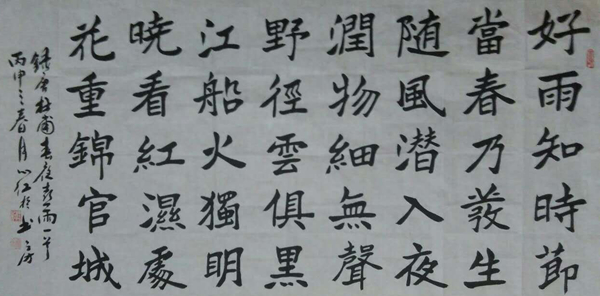 好雨知時節
當春乃發生
随風潜入夜
潤物細無聲
野徑雲俱黑
江船火獨明
曉看紅濕處
花重錦官城
錄唐杜甫春夜喜雨一首
丙申之春月心红於书房